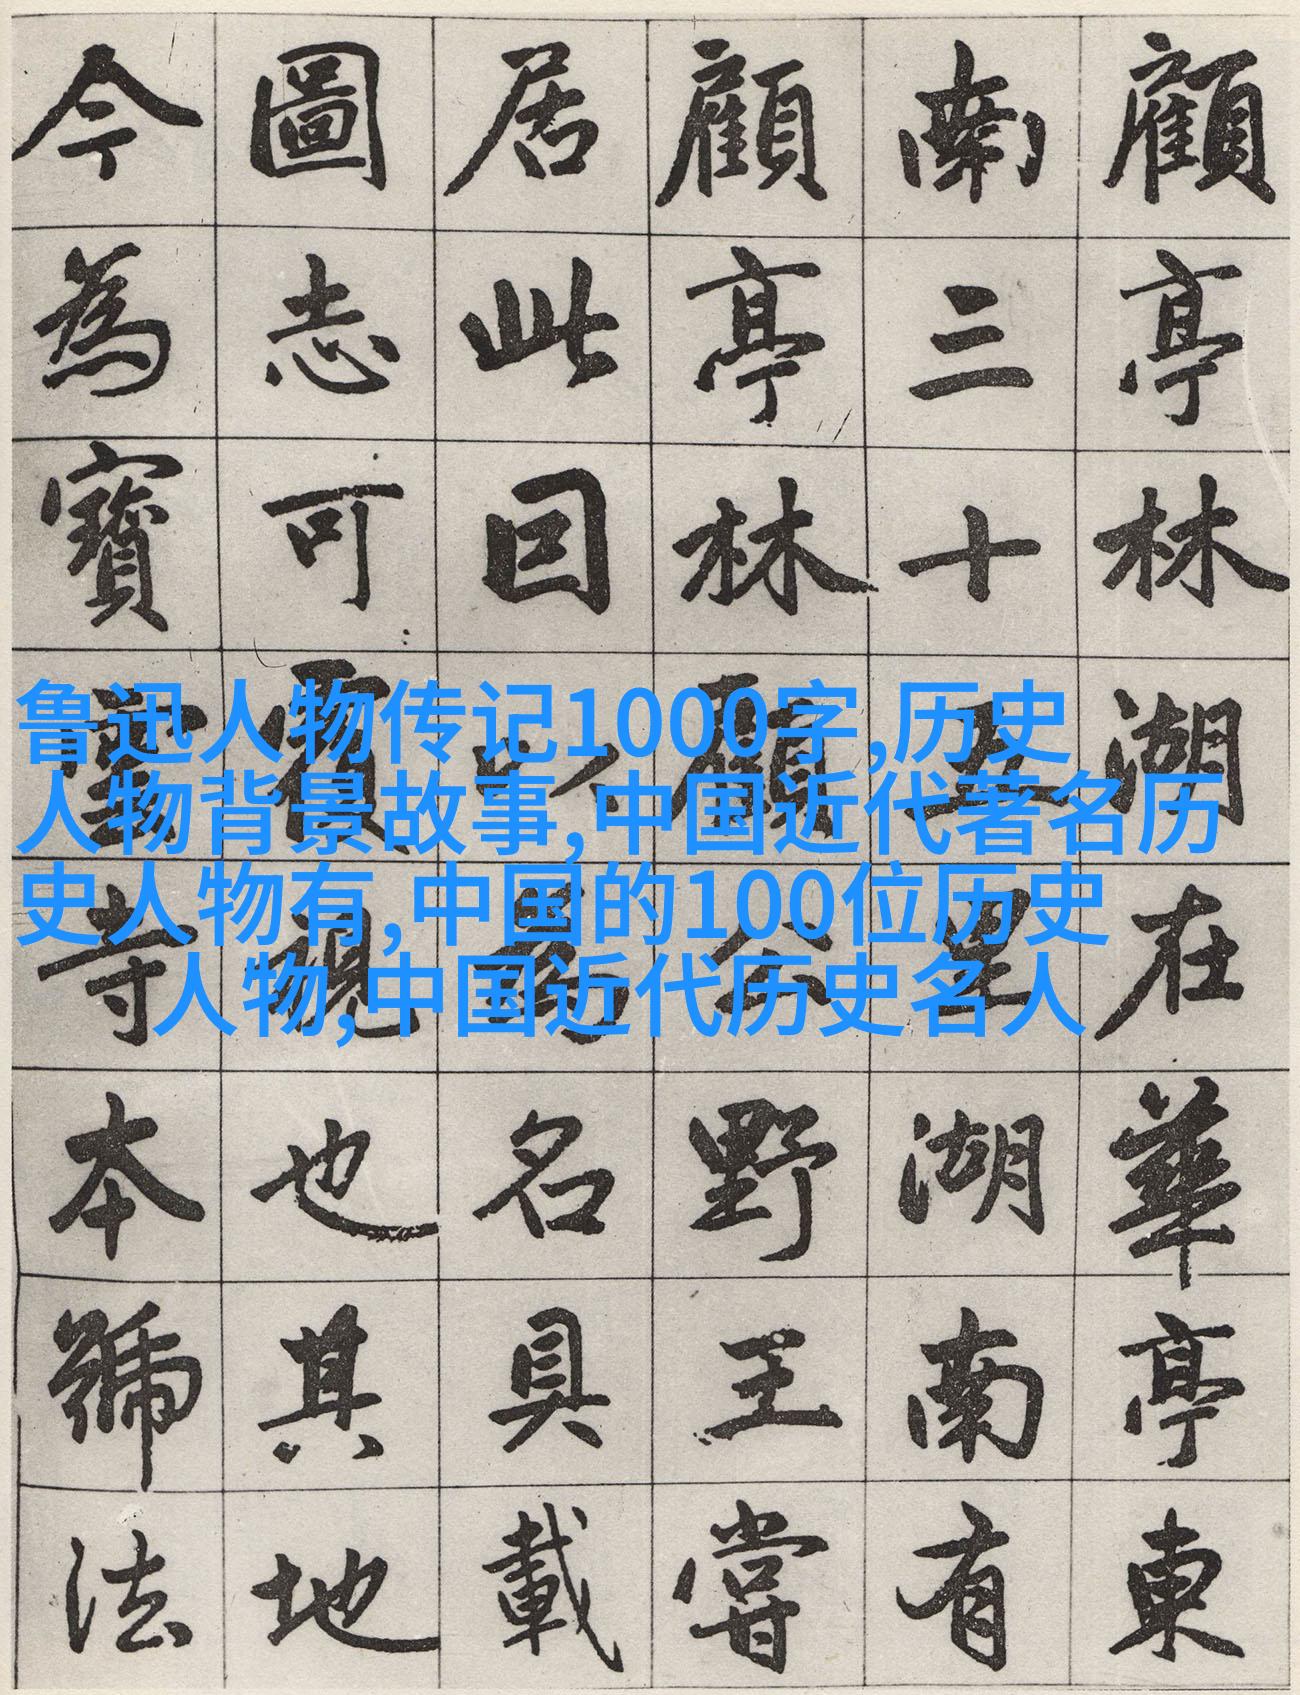 顧亭林湖在華亭東
南三十五里湖南有
顧亭林顧公野王嘗
居此囙以為名具載
圖志可覆視也其地
今為寶雲寺本號法
鲁迅人物传记1000字,历史
人物背景故事,中国近代著名历
史人物有,中国的100位历史
人物,中国近代历史名人